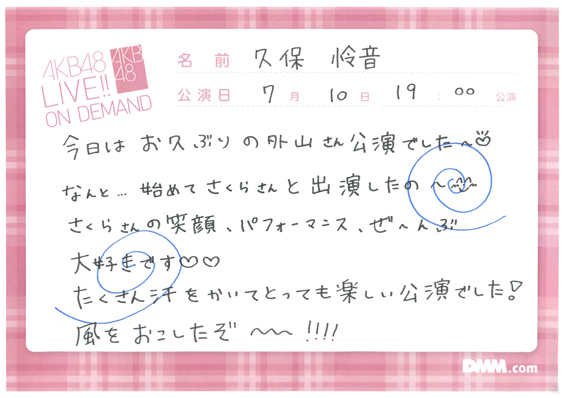 AKB48
LIVE!!
ON DEMAND
AKB
48
名前 久保 怜音
公演日 7月 10日 19:00 公演
今日は お久ぶり の 外山さん 公演でした〜
なんと… 始めて さくらさん と 出演したの 〜
さくらさんの 笑顔、パフォーマンス、ぜ〜んぶ
大好きです♡♡
たくさん汗をかいてとっても楽しい公演でした!
風をおこしたぞ 〜〜 !!!!
DMM.com